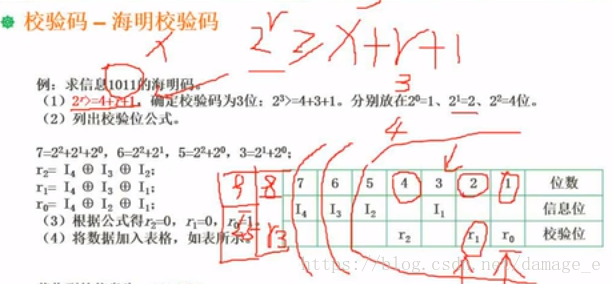 校验码 – 海明校验码
x
2^r ≥ x+r+1
3
例：求信息1011的海明码。
(1) 2^r>=4+r+1，确定校验码为3位：2³>=4+3+1。分别放在2⁰=1、2¹=2、2²=4位。
(2) 列出校验位公式。
4
7=2²+2¹+2⁰，6=2²+2¹，5=2²+2⁰，3=2¹+2⁰；
r₂= I₄ ⊕ I₃ ⊕ I₂；
r₁= I₄ ⊕ I₃ ⊕ I₁；
r₀= I₄ ⊕ I₂ ⊕ I₁；
(3) 根据公式得r₂=0，r₁=0，r₀=1。
(4) 将数据加入表格，如表所示。
9 8 7 6 5 4 3 2 1 位数
I₄ I₃ I₂ I₁ 信息位
r3 r₂ r₁ r₀ 校验位